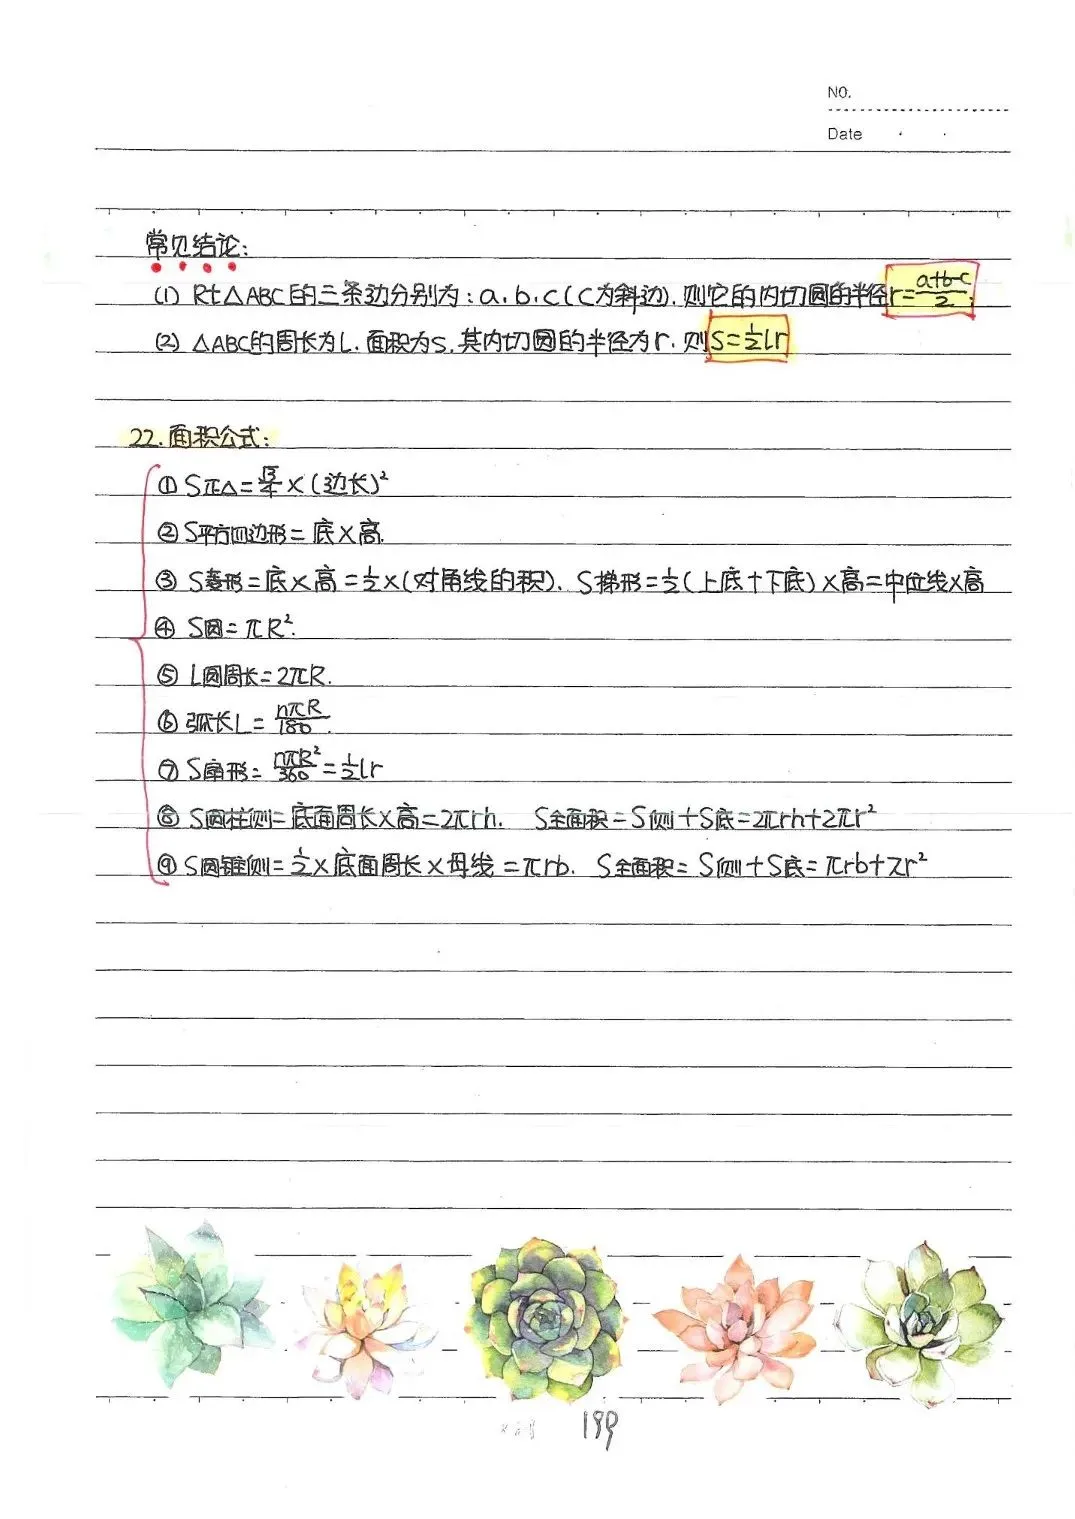 NO.
Date
常见结论:
(1) Rt△ABC的三条边分别为:a.b.c(C为斜边).则它的内切圆的半径r=a+b-c/2;
(2) △ABC的周长为L.面积为S.其内切圆的半径为r.则S=½Lr
22.面积公式:
① S正△=√3/4×(边长)²
② S平方四边形=底×高.
③ S菱形=底×高=½×(对角线的积). S梯形=½(上底+下底)×高=中位线×高
④ S圆=πR².
⑤ L圆周长=2πR.
⑥ 弧长L=nπR/180.
⑦ S扇形=nπR²/360=½lr
⑧ S圆柱侧=底面周长×高=2πrh. S全面积=S侧+S底=2πrh+2πr²
⑨ S圆锥侧=½×底面周长×母线=πrb. S全面积=S侧+S底=πrb+πr²
189